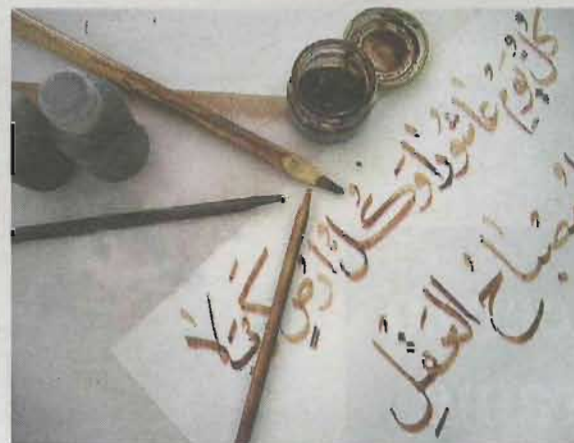 كُلُّ يَوْمٍ عَاشُورَا وَكُلُّ أَرْضٍ كَرْبَلَا
مِصْبَاحُ العَقْلِ